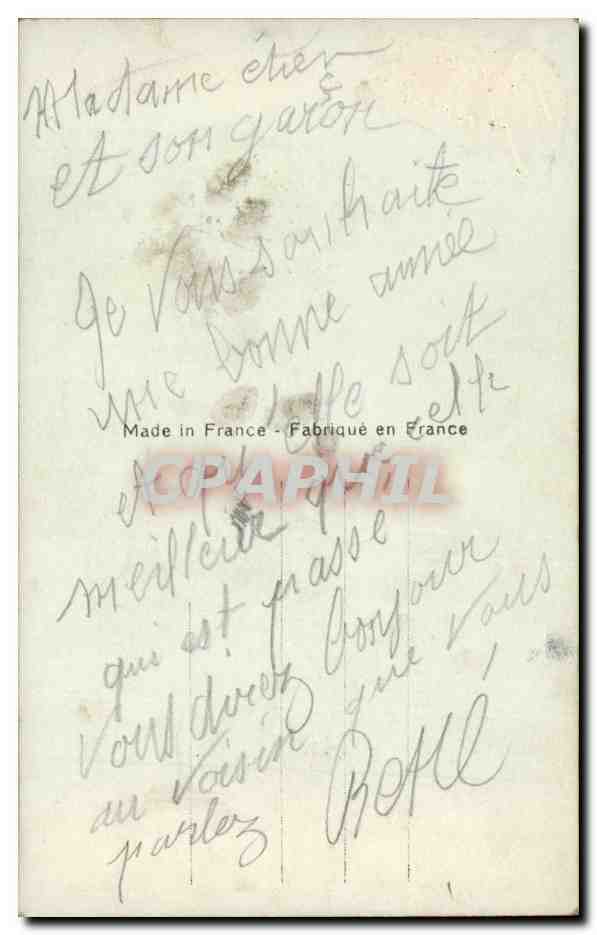 Madame
et son garçon
Je vous souhaite
une bonne année
et qu'elle soit
Made in France - Fabriqué en France
meilleur que celle
CPAPHIL
qui est passé
vous direz bonjour
au voisin que vous
parlez René